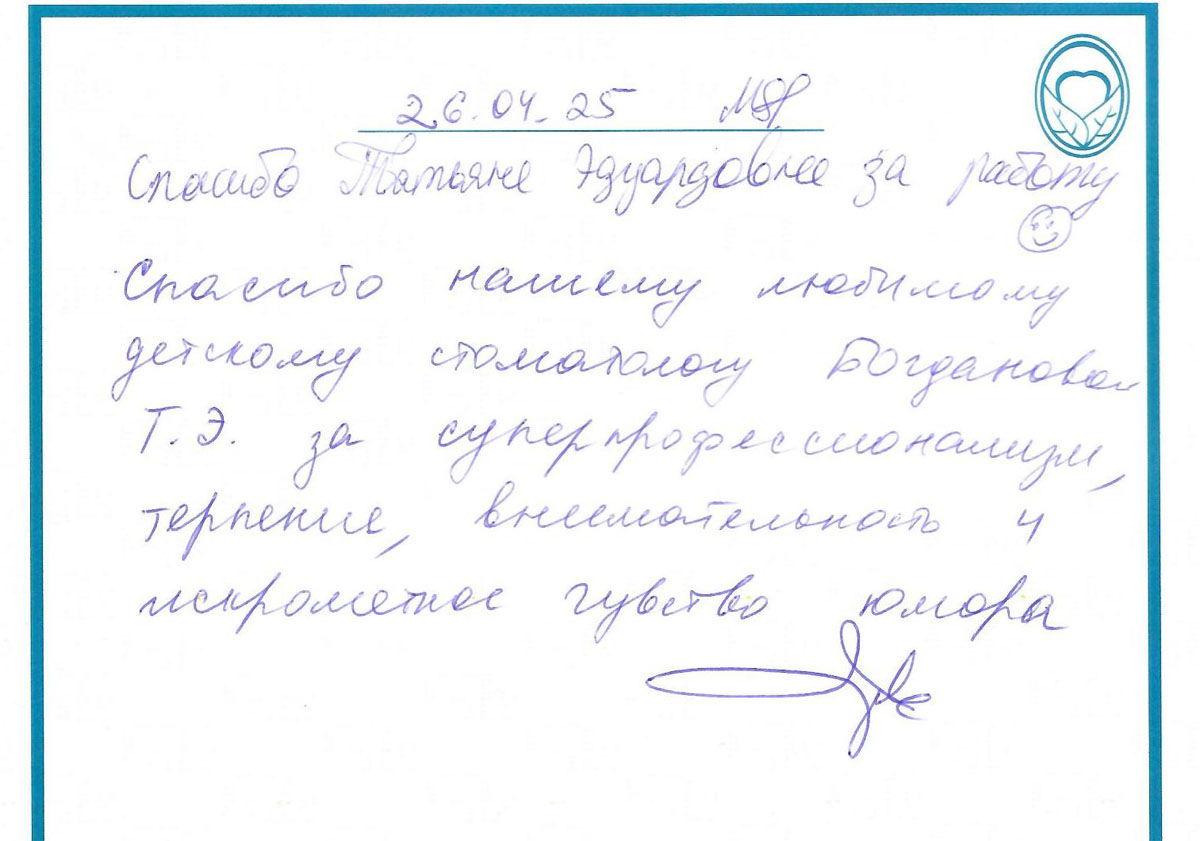 26.04.25
Спасибо Татьяне Эдуардовне за работу
Спасибо нашему любимому
детскому стоматологу Богдановой
Т.Э. за суперпрофессионализм,
терпение, внимательность и
искрометное чувство юмора